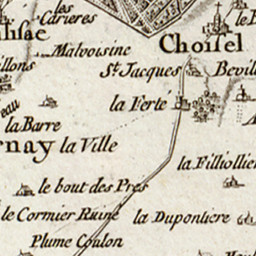 les
Carieres
Malvoisine
Choisel
St Jacques
la Ferté
la Barre
la Ville
la Filliollier
le bout des Prés
le Cormier Ruiné
la Duponliere
Plume Coulon